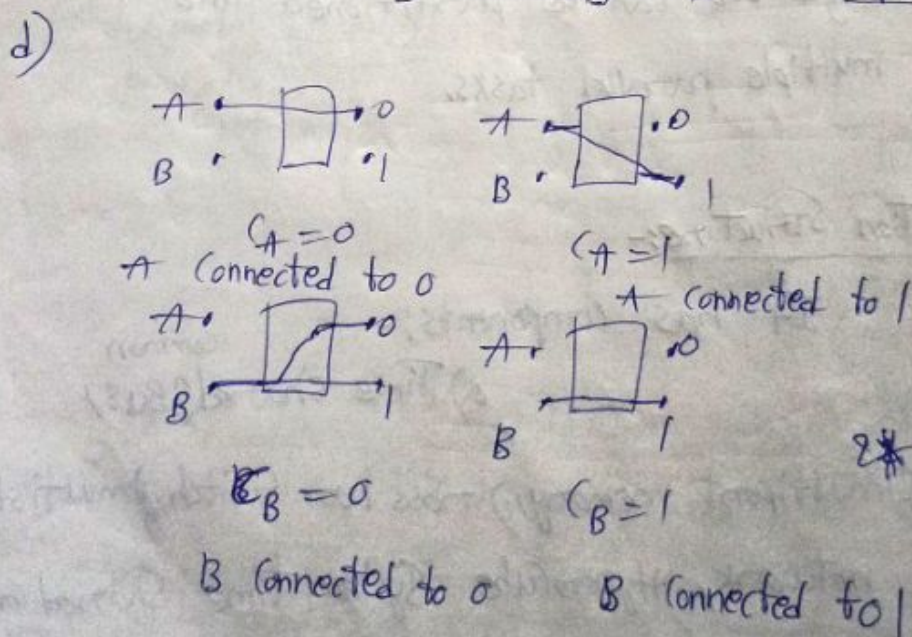 d)
A 0
B 1
C_A = 0
A Connected to 0
A 0
B 1
C_A = 1
A Connected to 1
A 0
B 1
C_B = 0
B Connected to 0
A 0
B 1
C_B = 1
B Connected to 1
2